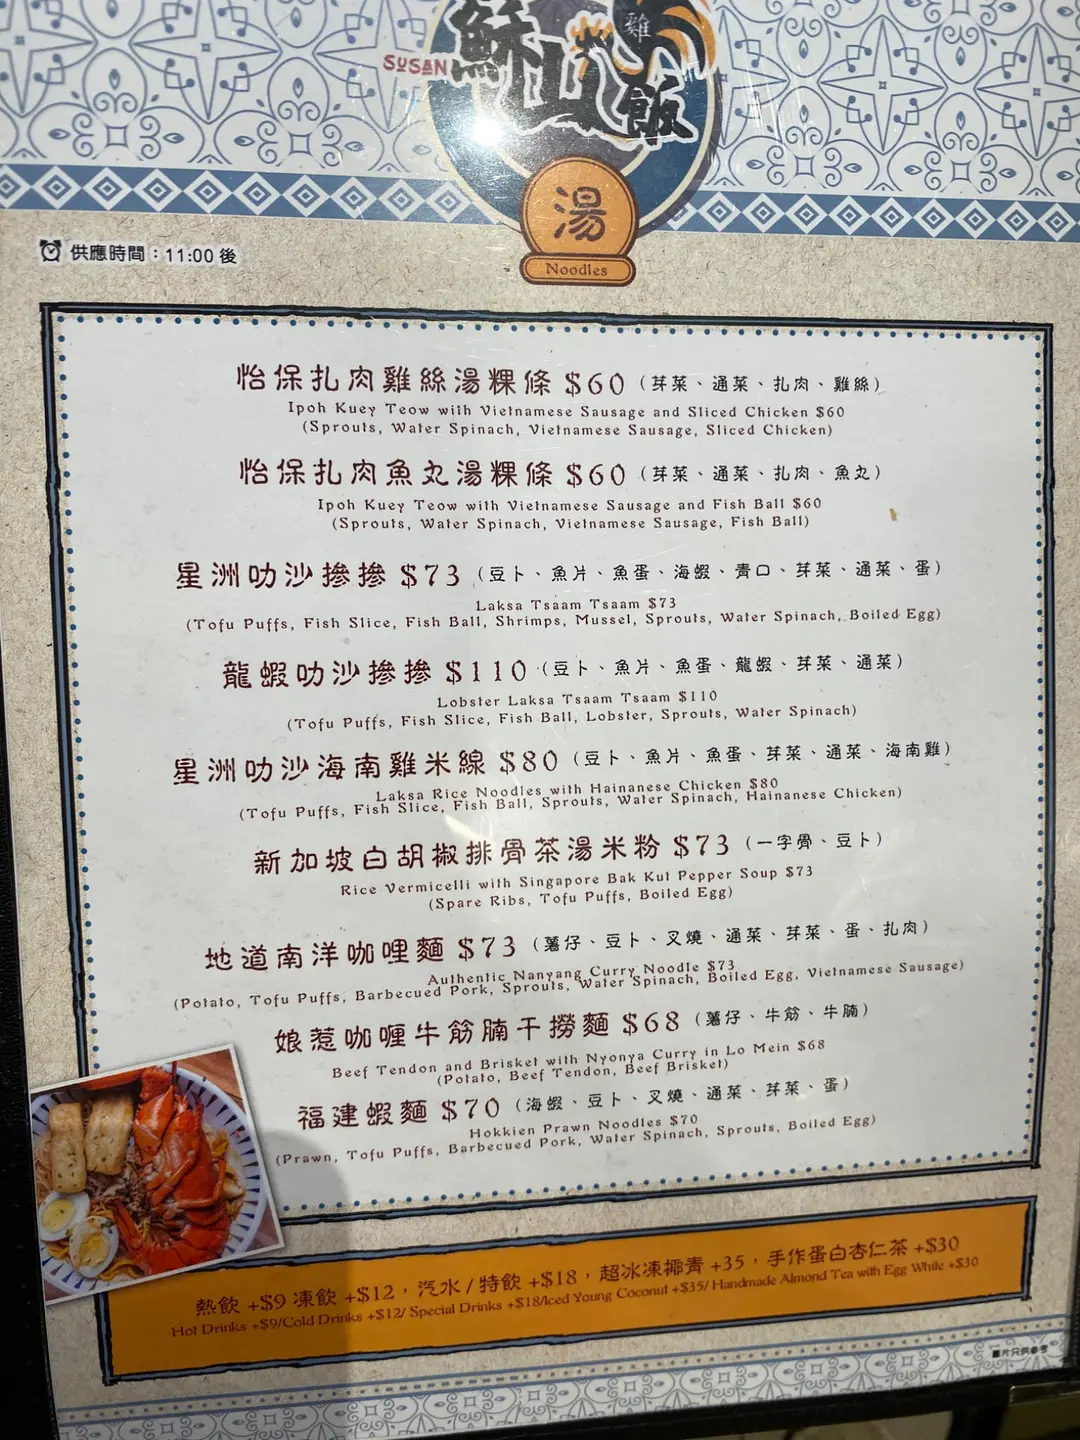 SUSAN
雞
飯
湯
Noodles
供應時間：11:00 後
怡保扎肉雞絲湯粿條 $60（芽菜、通菜、扎肉、雞絲）
Ipoh Kuey Teow with Vietnamese Sausage and Sliced Chicken $60
(Sprouts, Water Spinach, Vietnamese Sausage, Sliced Chicken)
怡保扎肉魚丸湯粿條 $60（芽菜、通菜、扎肉、魚丸）
Ipoh Kuey Teow with Vietnamese Sausage and Fish Ball $60
(Sprouts, Water Spinach, Vietnamese Sausage, Fish Ball)
星洲叻沙摻摻 $73（豆卜、魚片、魚蛋、海蝦、青口、芽菜、通菜、蛋）
Laksa Tsaam Tsaam $73
(Tofu Puffs, Fish Slice, Fish Ball, Shrimps, Mussel, Sprouts, Water Spinach, Boiled Egg)
龍蝦叻沙摻摻 $110（豆卜、魚片、魚蛋、龍蝦、芽菜、通菜）
Lobster Laksa Tsaam Tsaam $110
(Tofu Puffs, Fish Slice, Fish Ball, Lobster, Sprouts, Water Spinach)
星洲叻沙海南雞米線 $80（豆卜、魚片、魚蛋、芽菜、通菜、海南雞）
Laksa Rice Noodles with Hainanese Chicken $80
(Tofu Puffs, Fish Slice, Fish Ball, Sprouts, Water Spinach, Hainanese Chicken)
新加坡白胡椒排骨茶湯米粉 $73（一字骨、豆卜）
Rice Vermicelli with Singapore Bak Kut Pepper Soup $73
(Spare Ribs, Tofu Puffs, Boiled Egg)
地道南洋咖哩麵 $73（薯仔、豆卜、叉燒、通菜、芽菜、蛋、扎肉）
Authentic Nanyang Curry Noodle $73
(Potato, Tofu Puffs, Barbecued Pork, Sprouts, Water Spinach, Boiled Egg, Vietnamese Sausage)
娘惹咖喱牛筋腩干撈麵 $68（薯仔、牛筋、牛腩）
Beef Tendon and Brisket with Nyonya Curry in Lo Mein $68
(Potato, Beef Tendon, Beef Brisket)
福建蝦麵 $70（海蝦、豆卜、叉燒、通菜、芽菜、蛋）
Hokkien Prawn Noodles $70
(Prawn, Tofu Puffs, Barbecued Pork, Water Spinach, Sprouts, Boiled Egg)
熱飲 +$9 凍飲 +$12，汽水/特飲 +$18，超冰凍椰青 +35，手作蛋白杏仁茶 +$30
Hot Drinks +$9/Cold Drinks +$12/ Special Drinks +$18/Iced Young Coconut +$35/ Handmade Almond Tea with Egg White +$30
圖片只供參考